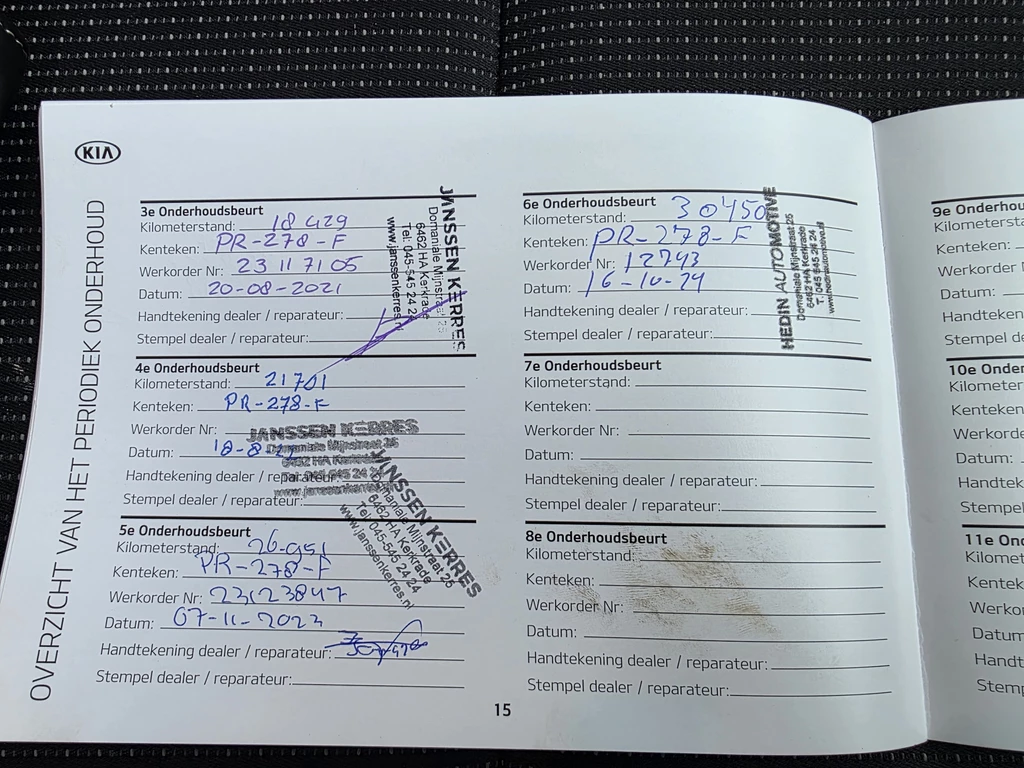 KIA
OVERZICHT VAN HET PERIODIEK ONDERHOUD
3e Onderhoudsbeurt
Kilometerstand: 18429
Kenteken: PR-278-F
Werkorder Nr: 23117105
Datum: 20-08-2021
Handtekening dealer / reparateur:
Stempel dealer / reparateur:
JANSSEN KERRES
Domaniale Mijnstraat 25
6462 HA Kerkrade
Tel: 045-545 24 24
www.janssenkerres
4e Onderhoudsbeurt
Kilometerstand: 21701
Kenteken: PR-278-F
Werkorder Nr:
Datum: 18-8-22
Handtekening dealer / reparateur:
Stempel dealer / reparateur:
JANSSEN KERRES
Domaniale Mijnstraat 25
6462 HA Kerkrade
Tel: 045-545 24 24
www.janssenkerres
5e Onderhoudsbeurt
Kilometerstand: 26.951
Kenteken: PR-278-F
Werkorder Nr: 23123847
Datum: 07-11-2023
Handtekening dealer / reparateur:
Stempel dealer / reparateur:
JANSSEN KERRES
Domaniale Mijnstraat 25
6462 HA Kerkrade
Tel: 045-545 24 24
www.janssenkerres.nl
6e Onderhoudsbeurt
Kilometerstand: 30450
Kenteken: PR-278-F
Werkorder Nr: 12743
Datum: 16-10-24
Handtekening dealer / reparateur:
Stempel dealer / reparateur:
HEDIN AUTOMOTIVE
Domaniale Mijnstraat 25
6462 HA Kerkrade
T. 045 545 24 24
www.hedinautomotive.nl
7e Onderhoudsbeurt
Kilometerstand:
Kenteken:
Werkorder Nr:
Datum:
Handtekening dealer / reparateur:
Stempel dealer / reparateur:
8e Onderhoudsbeurt
Kilometerstand:
Kenteken:
Werkorder Nr:
Datum:
Handtekening dealer / reparateur:
Stempel dealer / reparateur:
15
9e Onderhou
Kilometersta
Kenteken:
Werkorder
Datum:
Handteken
Stempel de
10e Onder
Kilometer
Kenteken
Werkorde
Datum:
Handtek
Stempel
11e On
Kilomet
Kentek
Werko
Datum
Handt
Stemp